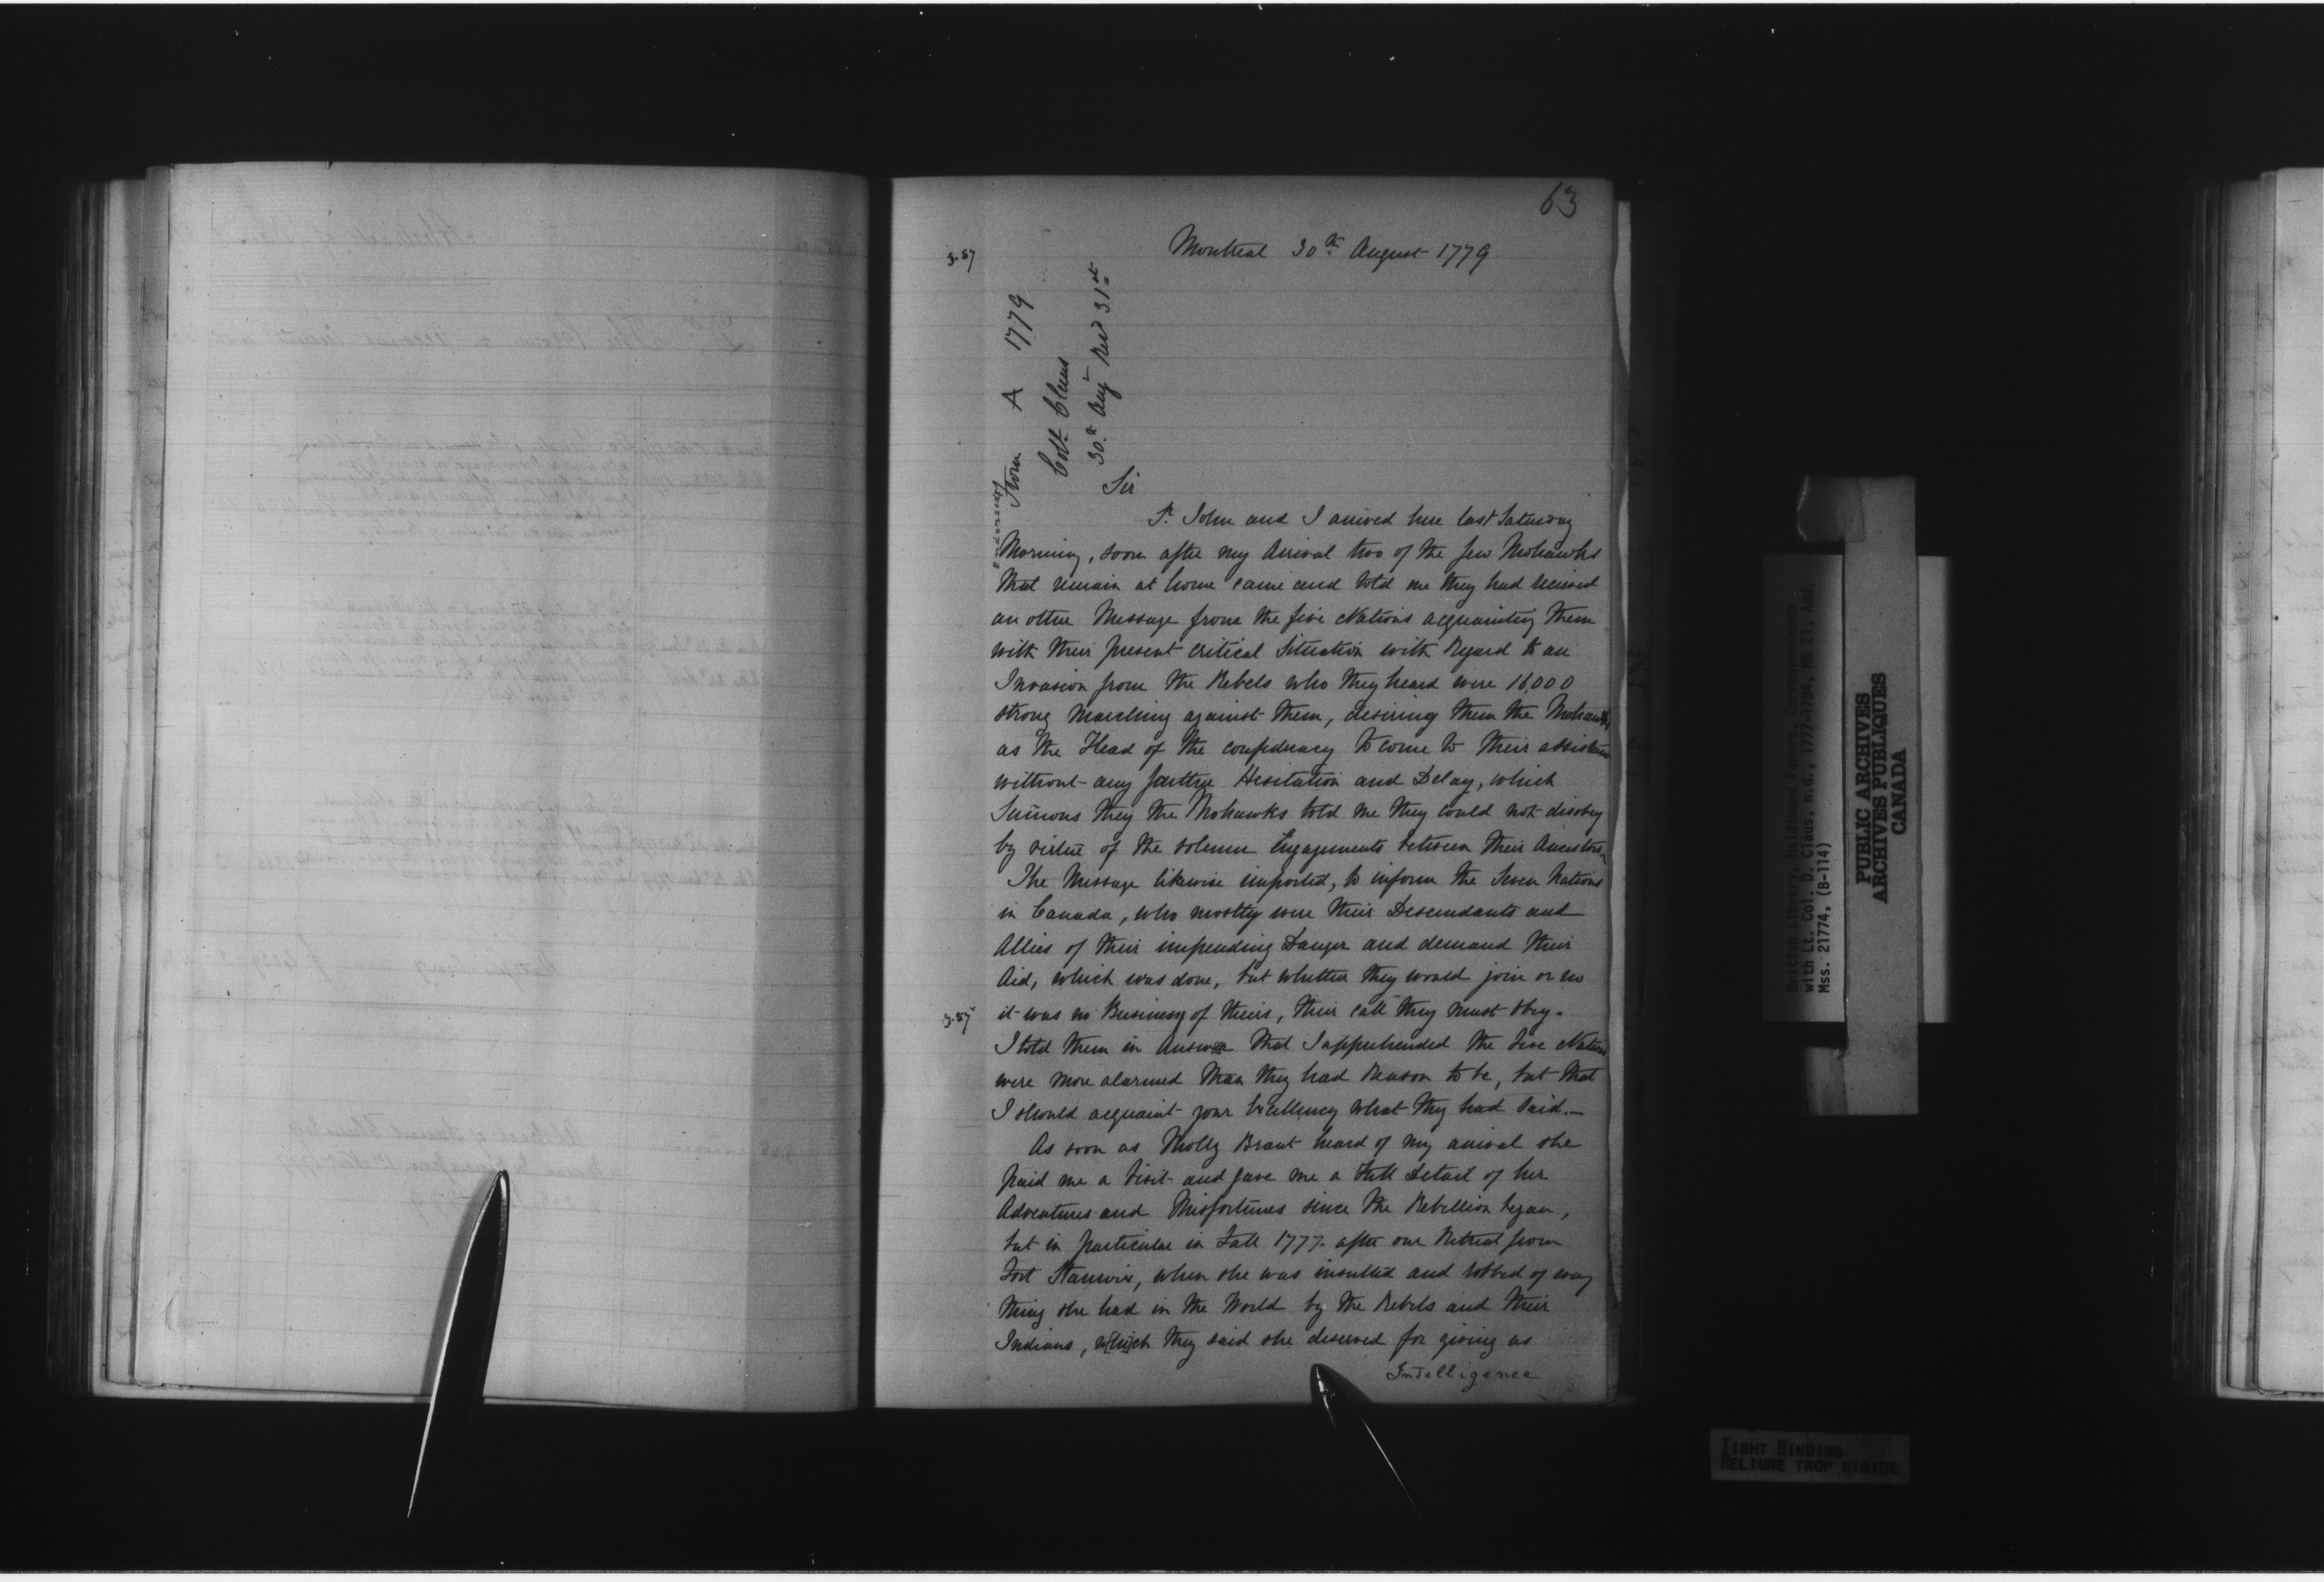 63
Montreal 30th August 1779
3.57
Endorsed
From A 1779
Colo. Claus
30th Augt Recd 31st
Sir
Sr. John and I arrived here last Saturday
Morning, soon after my Arrival two of the few Mohawks
that remain at home came and told me they had received
an other Message from the five Nations acquainting them
with their present critical Situation with Regard to an
Invasion from the Rebels who they heard were 16,000
strong marching against them, desiring them the Mohawks
as the Head of the confederacy to come to their assistance
without any further Hesitation and Delay, which
Sumons they the Mohawks told me they could not disobey
by virtue of the solemn Engagements between their Ancestors,
The Message likewise imported, to inform the Seven Nations
in Canada, who mostly were their Descendants and
Allies of their impending Danger and demand their
Aid, which was done, but whether they would join or no
it was no Business of theirs, their call they must obey.
I told them in Answer that I apprehended the five Nations
were more alarmed than they had Reason to be, but that
I should acquaint your Excellency what they had said.—
As soon as Molly Brant heard of my arrival she
paid me a Visit and gave me a full Detail of her
Adventures and Misfortunes since the Rebellion began,
but in particular in Fall 1777. after our Retreat from
Fort Stanwix, when she was insulted and robbed of every
thing she had in the World by the Rebels and their
Indians, which they said she deserved for giving us
Intelligence
British Library, Haldimand Papers, Correspondence
with Lt. Col. D. Claus, n.d., 1777-1784, MG 21, Add.
Mss. 21774, (B-114)
PUBLIC ARCHIVES
ARCHIVES PUBLIQUES
CANADA
TIGHT BINDING
RELIURE TROP RIGIDE